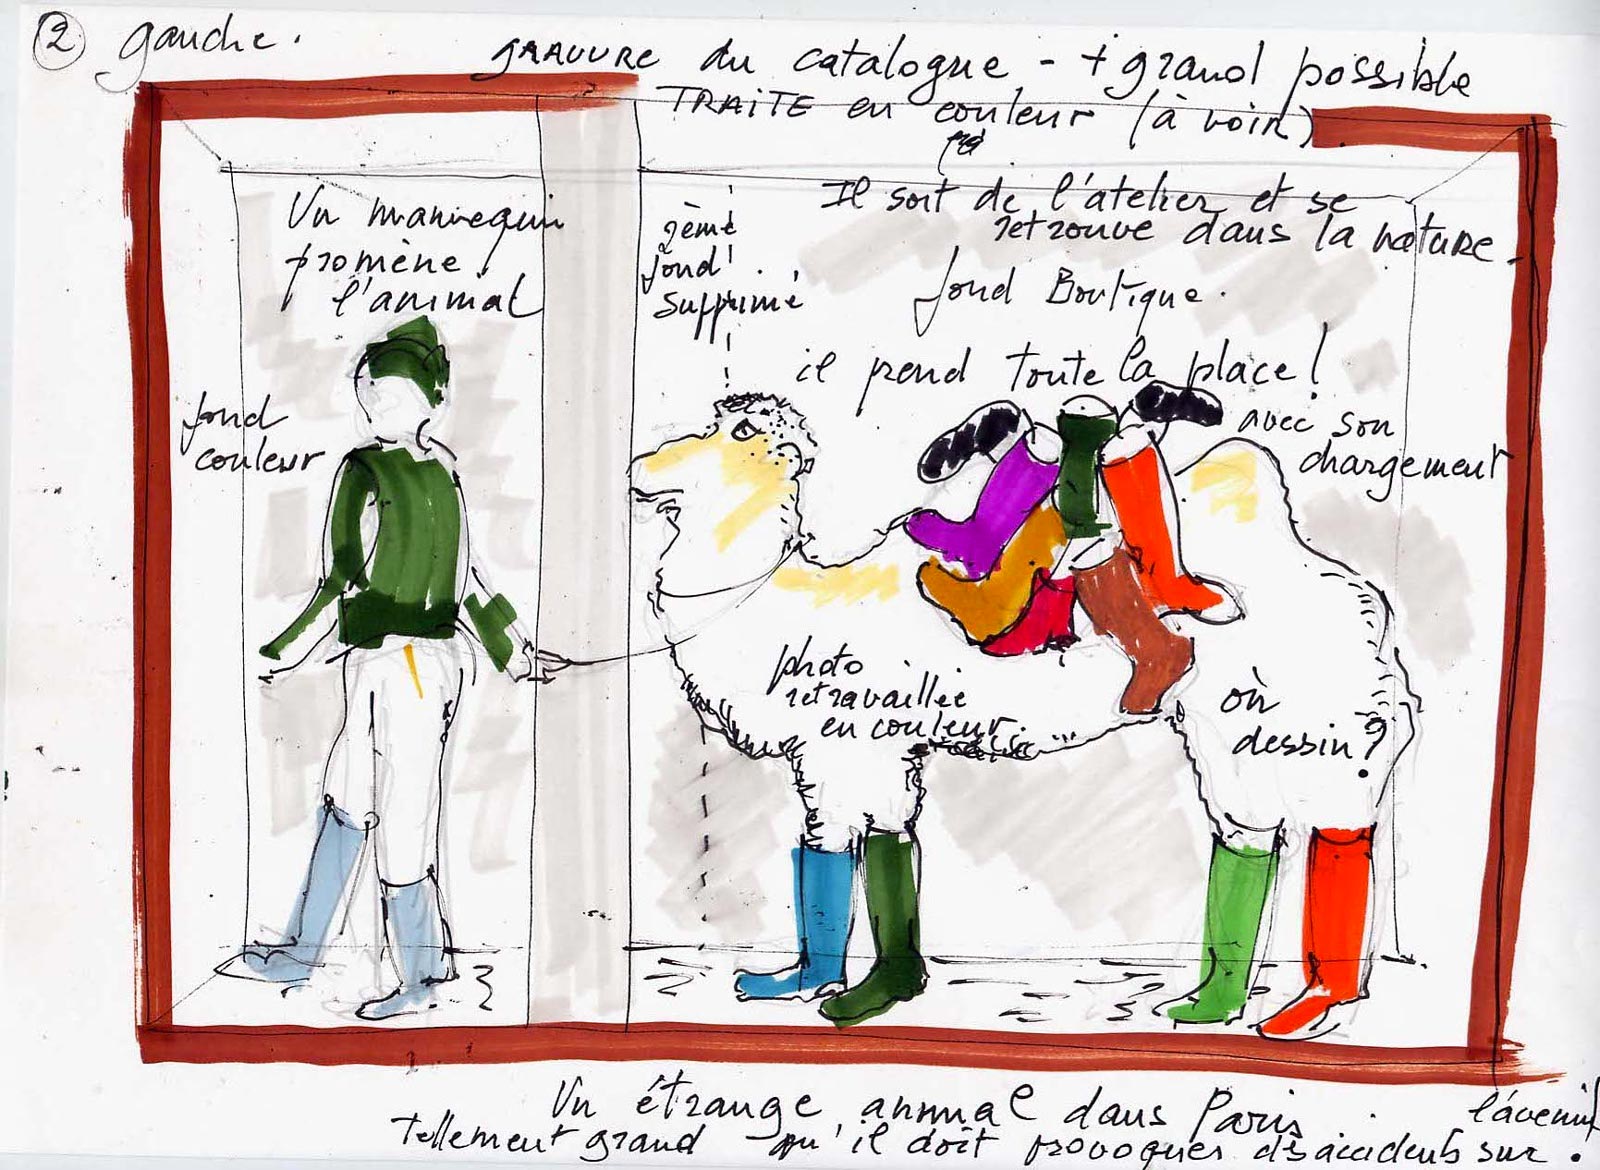 ② gauche.
GRAVURE du catalogue - + grand possible
TRAITE en couleur (à voir)
Il sort de l'atelier et se
retrouve dans la nature.
Un mannequin
promène
l'animal
2ème
fond
supprimé
fond Boutique.
il prend toute la place!
avec son
chargement
fond
couleur
photo
retravaillée
en couleur.
où
dessin?
Un étrange animal dans Paris
tellement grand qu'il doit provoquer des accidents sur